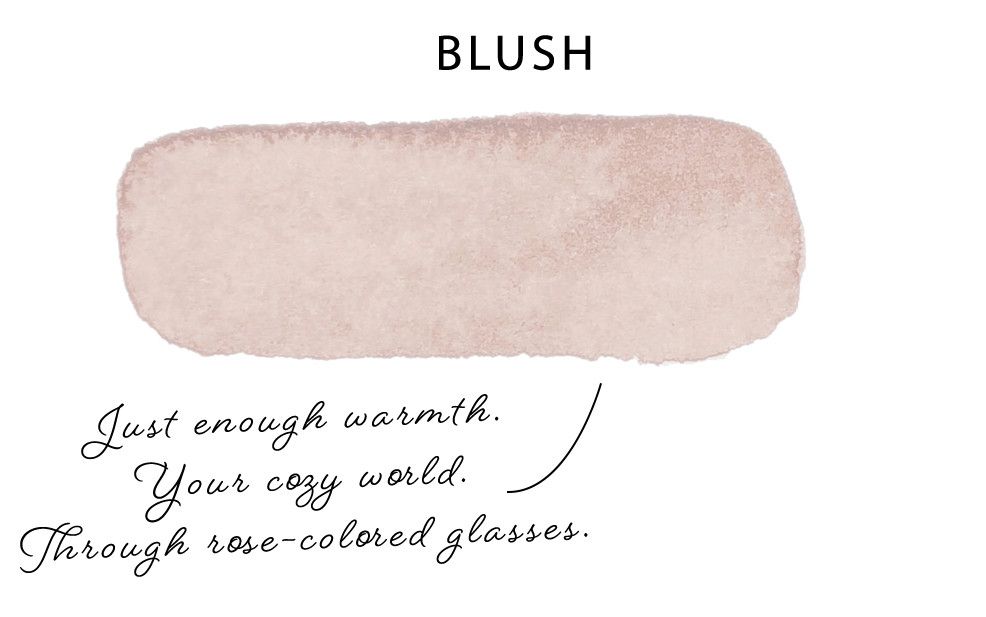 BLUSH
Just enough warmth.
Your cozy world.
Through rose-colored glasses.